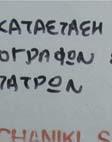 ΚΑΤΑΣΤΑΣΗ
ΟΓΡΑΦΩΝ
ΑΤΡΩΝ
CHANIKI S